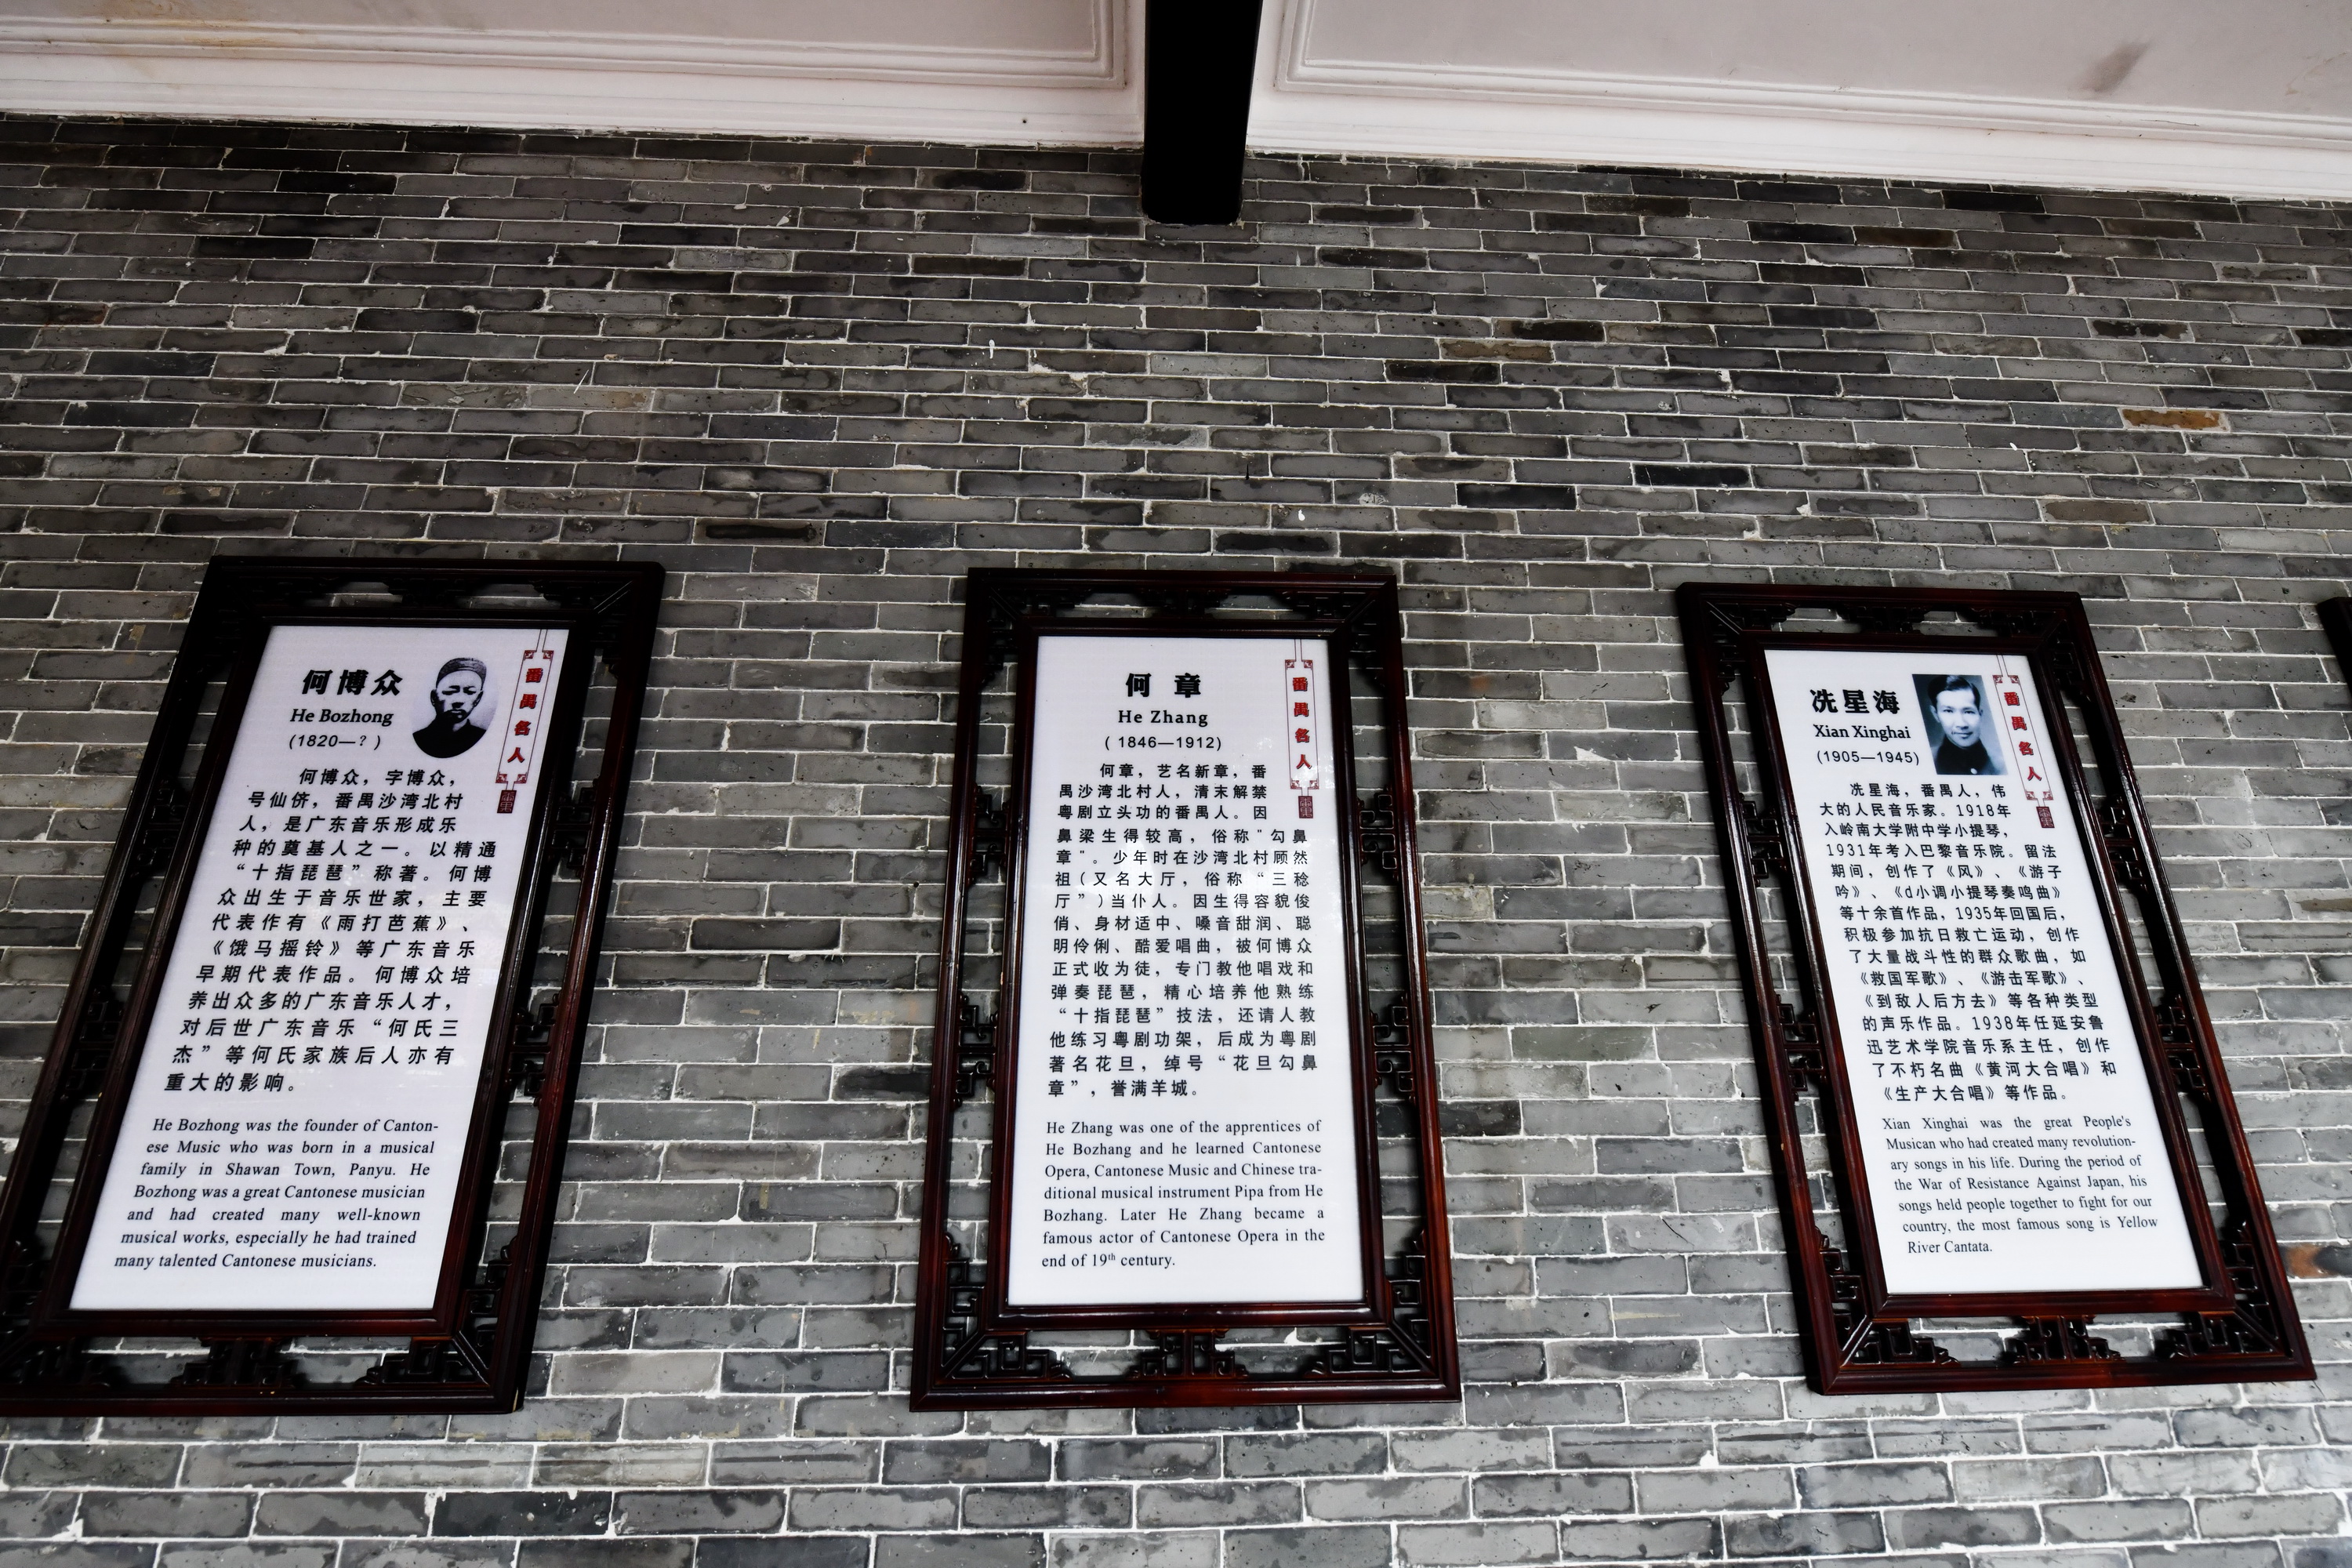 何博众
He Bozhong
(1820—？)
番禺名人
何博众，字博众，
号仙侪，番禺沙湾北村
人，是广东音乐形成乐
种的奠基人之一。以精通
“十指琵琶”称著。何博
众出生于音乐世家，主要
代表作有《雨打芭蕉》、
《饿马摇铃》等广东音乐
早期代表作品。何博众培
养出众多的广东音乐人才，
对后世广东音乐“何氏三
杰”等何氏家族后人亦有
重大的影响。
He Bozhong was the founder of Canton-
ese Music who was born in a musical
family in Shawan Town, Panyu. He
Bozhong was a great Cantonese musician
and had created many well-known
musical works, especially he had trained
many talented Cantonese musicians.
何章
He Zhang
(1846—1912)
番禺名人
何章，艺名新章，番
禺沙湾北村人，清末解禁
粤剧立头功的番禺人。因
鼻梁生得较高，俗称“勾鼻
章”。少年时在沙湾北村顾然
祖（又名大厅，俗称“三稔
厅”）当仆人。因生得容貌俊
俏、身材适中、嗓音甜润、聪
明伶俐、酷爱唱曲，被何博众
正式收为徒，专门教他唱戏和
弹奏琵琶，精心培养他熟练
“十指琵琶”技法，还请人教
他练习粤剧功架，后成为粤剧
著名花旦，绰号“花旦勾鼻
章”，誉满羊城。
He Zhang was one of the apprentices of
He Bozhang and he learned Cantonese
Opera, Cantonese Music and Chinese tra-
ditional musical instrument Pipa from He
Bozhang. Later He Zhang became a
famous actor of Cantonese Opera in the
end of 19th century.
冼星海
Xian Xinghai
(1905—1945)
番禺名人
冼星海，番禺人，伟
大的人民音乐家。1918年
入岭南大学附中学小提琴，
1931年考入巴黎音乐院。留法
期间，创作了《风》、《游子
吟》、《d小调小提琴奏鸣曲》
等十余首作品，1935年回国后，
积极参加抗日救亡运动，创作
了大量战斗性的群众歌曲，如
《救国军歌》、《游击军歌》、
《到敌人后方去》等各种类型
的声乐作品。1938年任延安鲁
迅艺术学院音乐系主任，创作
了不朽名曲《黄河大合唱》和
《生产大合唱》等作品。
Xian Xinghai was the great People's
Musican who had created many revolution-
ary songs in his life. During the period of
the War of Resistance Against Japan, his
songs held people together to fight for our
country, the most famous song is Yellow
River Cantata.